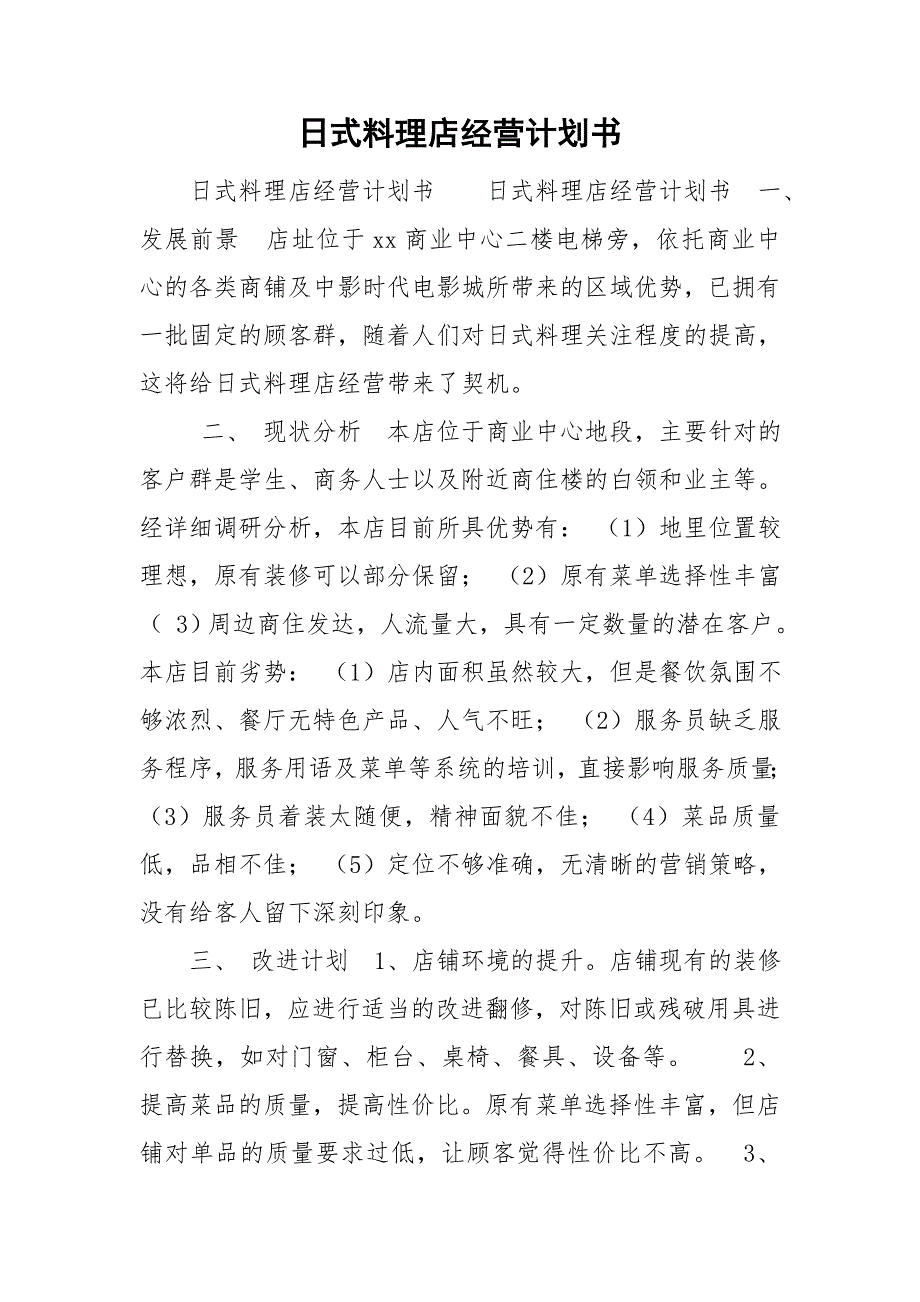 日式料理店经营计划书
日式料理店经营计划书　　日式料理店经营计划书　一、
发展前景　店址位于 xx 商业中心二楼电梯旁，依托商业中
心的各类商铺及中影时代电影城所带来的区域优势，已拥有
一批固定的顾客群，随着人们对日式料理关注程度的提高，
这将给日式料理店经营带来了契机。
二、 现状分析　本店位于商业中心地段，主要针对的
客户群是学生、商务人士以及附近商住楼的白领和业主等。
经详细调研分析，本店目前所具优势有： （1）地里位置较
理想，原有装修可以部分保留； （2）原有菜单选择性丰富
（ 3）周边商住发达，人流量大，具有一定数量的潜在客户。
本店目前劣势： （1）店内面积虽然较大，但是餐饮氛围不
够浓烈、餐厅无特色产品、人气不旺； （2）服务员缺乏服
务程序，服务用语及菜单等系统的培训，直接影响服务质量；
（3）服务员着装太随便，精神面貌不佳； （4）菜品质量
低，品相不佳； （5）定位不够准确，无清晰的营销策略，
没有给客人留下深刻印象。
三、 改进计划　1、店铺环境的提升。店铺现有的装修
已比较陈旧，应进行适当的改进翻修，对陈旧或残破用具进
行替换，如对门窗、柜台、桌椅、餐具、设备等。　　2、
提高菜品的质量，提高性价比。原有菜单选择性丰富，但店
铺对单品的质量要求过低，让顾客觉得性价比不高。　3、